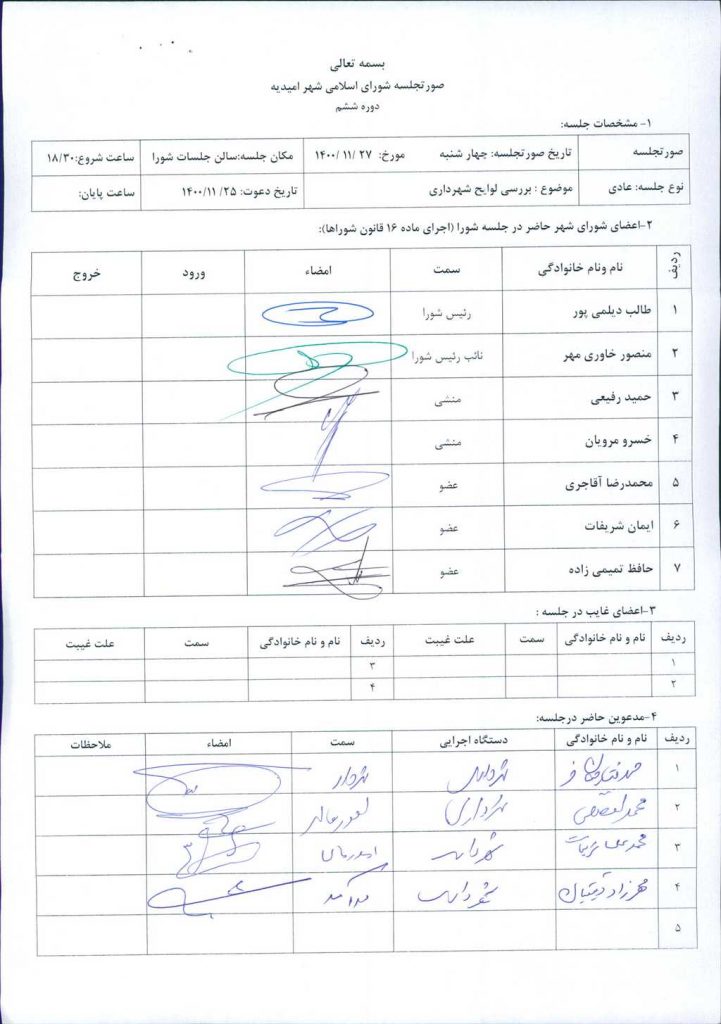 بسمه تعالی
صورتجلسه شورای اسلامی شهر امیدیه
دوره ششم
۱- مشخصات جلسه:
صورتجلسه تاریخ صورتجلسه: چهار شنبه مورخ: ۲۷ /۱۱ /۱۴۰۰ مکان جلسه:سالن جلسات شورا ساعت شروع:۱۸/۳۰
نوع جلسه: عادی موضوع : بررسی لوایح شهرداری تاریخ دعوت: ۲۵/ ۱۴۰۰/۱۱ ساعت پایان:
۲-اعضای شورای شهر حاضر در جلسه شورا (اجرای ماده ۱۶ قانون شوراها):
ردیف نام ونام خانوادگی سمت امضاء ورود خروج
۱ طالب دیلمی پور رئیس شورا
۲ منصور خاوری مهر نائب رئیس شورا
۳ حمید رفیعی منشی
۴ خسرو مرویان منشی
۵ محمدرضا آقاجری عضو
۶ ایمان شریفات عضو
۷ حافظ تمیمی زاده عضو
۳-اعضای غایب در جلسه :
ردیف نام و نام خانوادگی سمت علت غیبت ردیف نام و نام خانوادگی سمت علت غیبت
۱ ۳
۲ ۴
۴-مدعوین حاضر درجلسه:
ردیف نام و نام خانوادگی دستگاه اجرایی سمت امضاء ملاحظات
۱ شهرداری شهردار
۲ شهرداری
۳ شهرداری
۴ شهرداری درآمد
۵